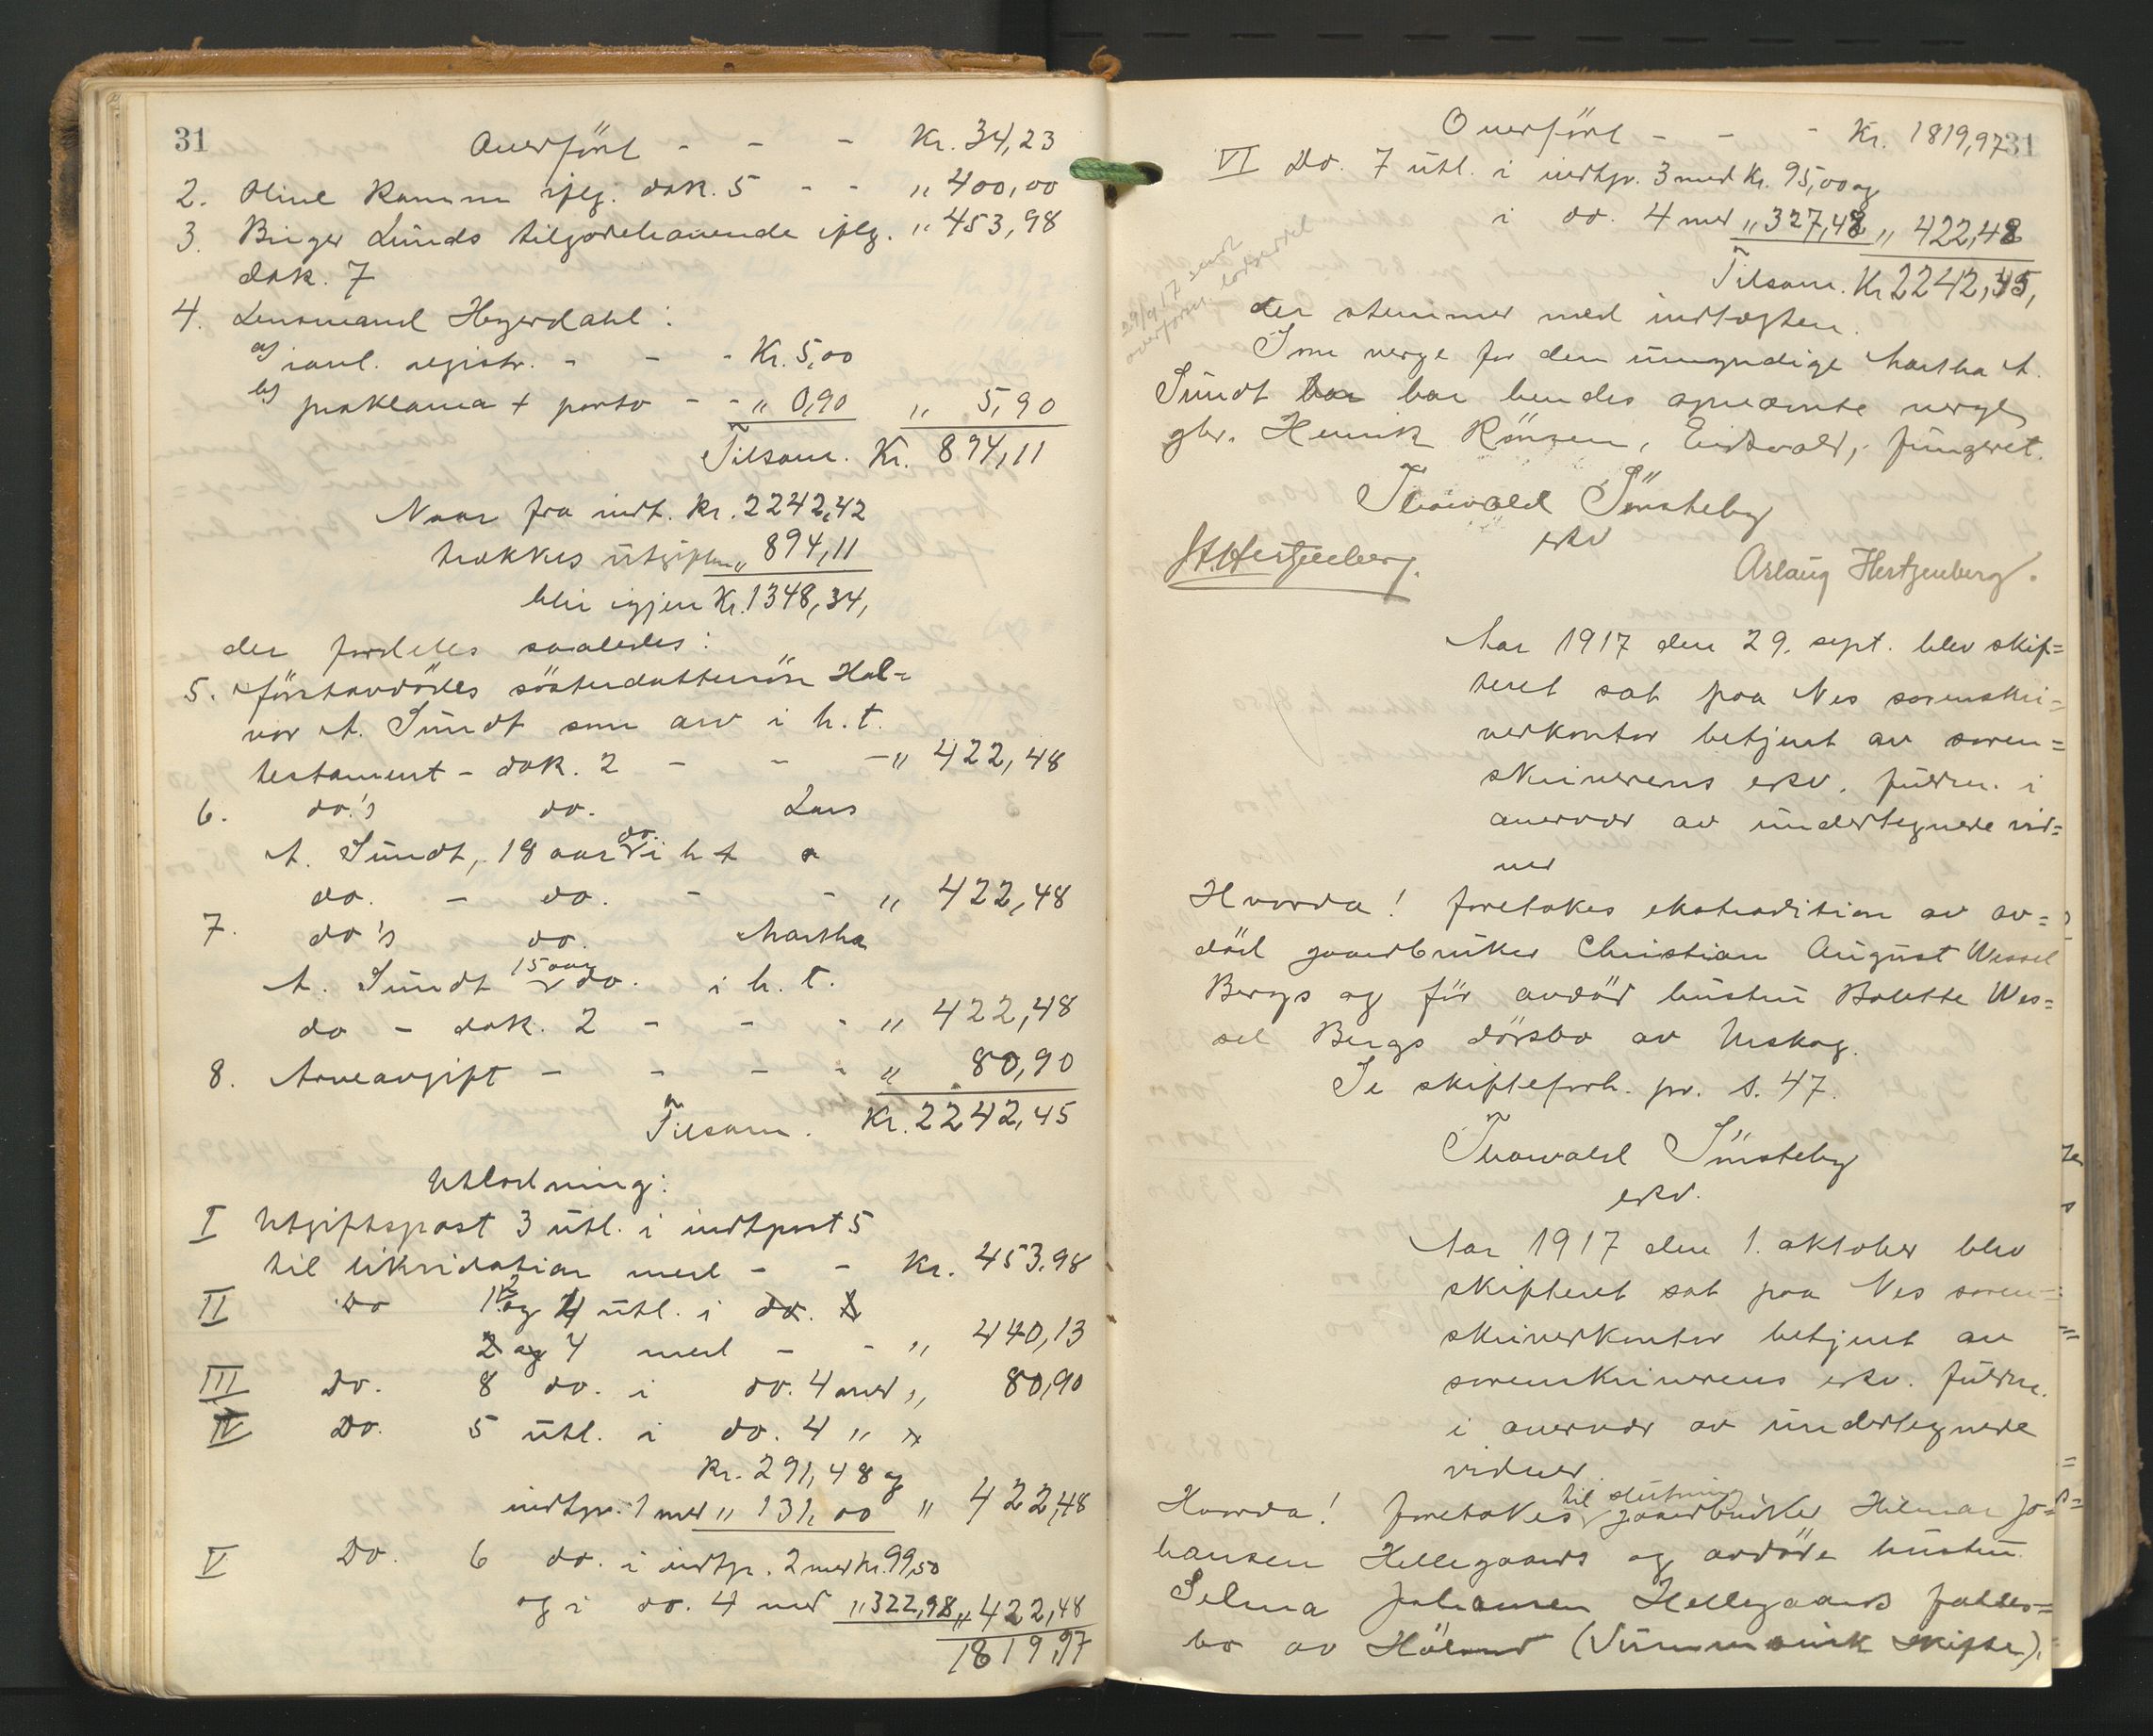 31
Overført - - - Kr. 34,23
2. Oline Ramm iflg. dok. 5 - - " 400,00
3. Birger Lunds tilgodehavende iflg. " 453,98
dok. 7
4. Lensmand Heyerdahl:
a) registr. - - - Kr. 5,00
b) proklama + porto - - " 0,90 " 5,90
Tilsam. Kr. 894,11
Naar fra indt. Kr. 2242,42
trækkes utgiften " 894,11
blir igjen Kr. 1348,34,
der fordeles saaledes:
5. Førstavdødes søsterdattersøn Hal-
vor A. Sundt som arv i h. t.
testament - dok. 2 - - - " 422,48
6. do.'s do. Lars
A. Sundt, 18 aar do. i h t
do. - do. - - " 422,48
7. do's do. Martha
A. Sundt 15 aar do. i h. t.
do - dok. 2 - - - " 422,48
8. Arveavgift - - - - " 80,90
Tilsam. Kr. 2242,45
Utlodning:
I Utgiftspost 3 utl. i indtpost 5
til likvidation med - - Kr. 453.98
II Do 1, 2 og 4 utl. i do.
2 og 4 med - - " 440,13
III Do. 8 do. i do. 4 med " 80,90
IV Do. 5 utl. i do. 4 " "
Kr. 291,48 og
indtp. 1 med " 131,00 " 422,48
V Do. 6 do. i indtp. 2 med kr. 99,50
og i do. 4 med " 322,98 " 422,48
1819,97
Overført - - - Kr. 1819,97
31
VI Do. 7 utl. i indtp. 3 med Kr. 95,00 og
i do. 4 med " 327,48 " 422,48
Tilsam. Kr 2242,45,
29/9 17 sendt
overform. lodseddel
der stemmer med indtægten.
Som verge for den umyndige Martha A.
Sundt har hendes opnævnte verge
gbr. Henrik Rønsen, Eidsvold, fungeret.
Thorvald Sønsteby
eksv
H. Hertzenberg.
Aslaug Hertzenberg.
Aar 1917 den 29. sept. blev skif=
teret sat paa Nes sorenskri=
verkontor betjent av soren=
skriverens eksv. fuldm. i
overvær av undertegnede vid=
ner
Hvorda! foretokes ekstradition av av=
død gaardbruker Christian August Wessel
Bergs og før avdød hustru Bolette Wes=
sel Bergs dødsbo av Urskog.
Se skifteforh. pr. s. 47.
Thorvald Sønsteby
eksv.
Aar 1917 den 1. oktober blev
skifteret sat paa Nes soren=
skriverkontor betjent av
sorenskriverens eksv. fuldm.
i overvær av undertegnede
vidner.
Hvorda! foretokes til slutning gaardbruker Hilmar Jo=
hansen Hellegaards og avdøde hustru
Selma Johansen Hellegaards fælles=
bo av Høland (Summarisk skifte).